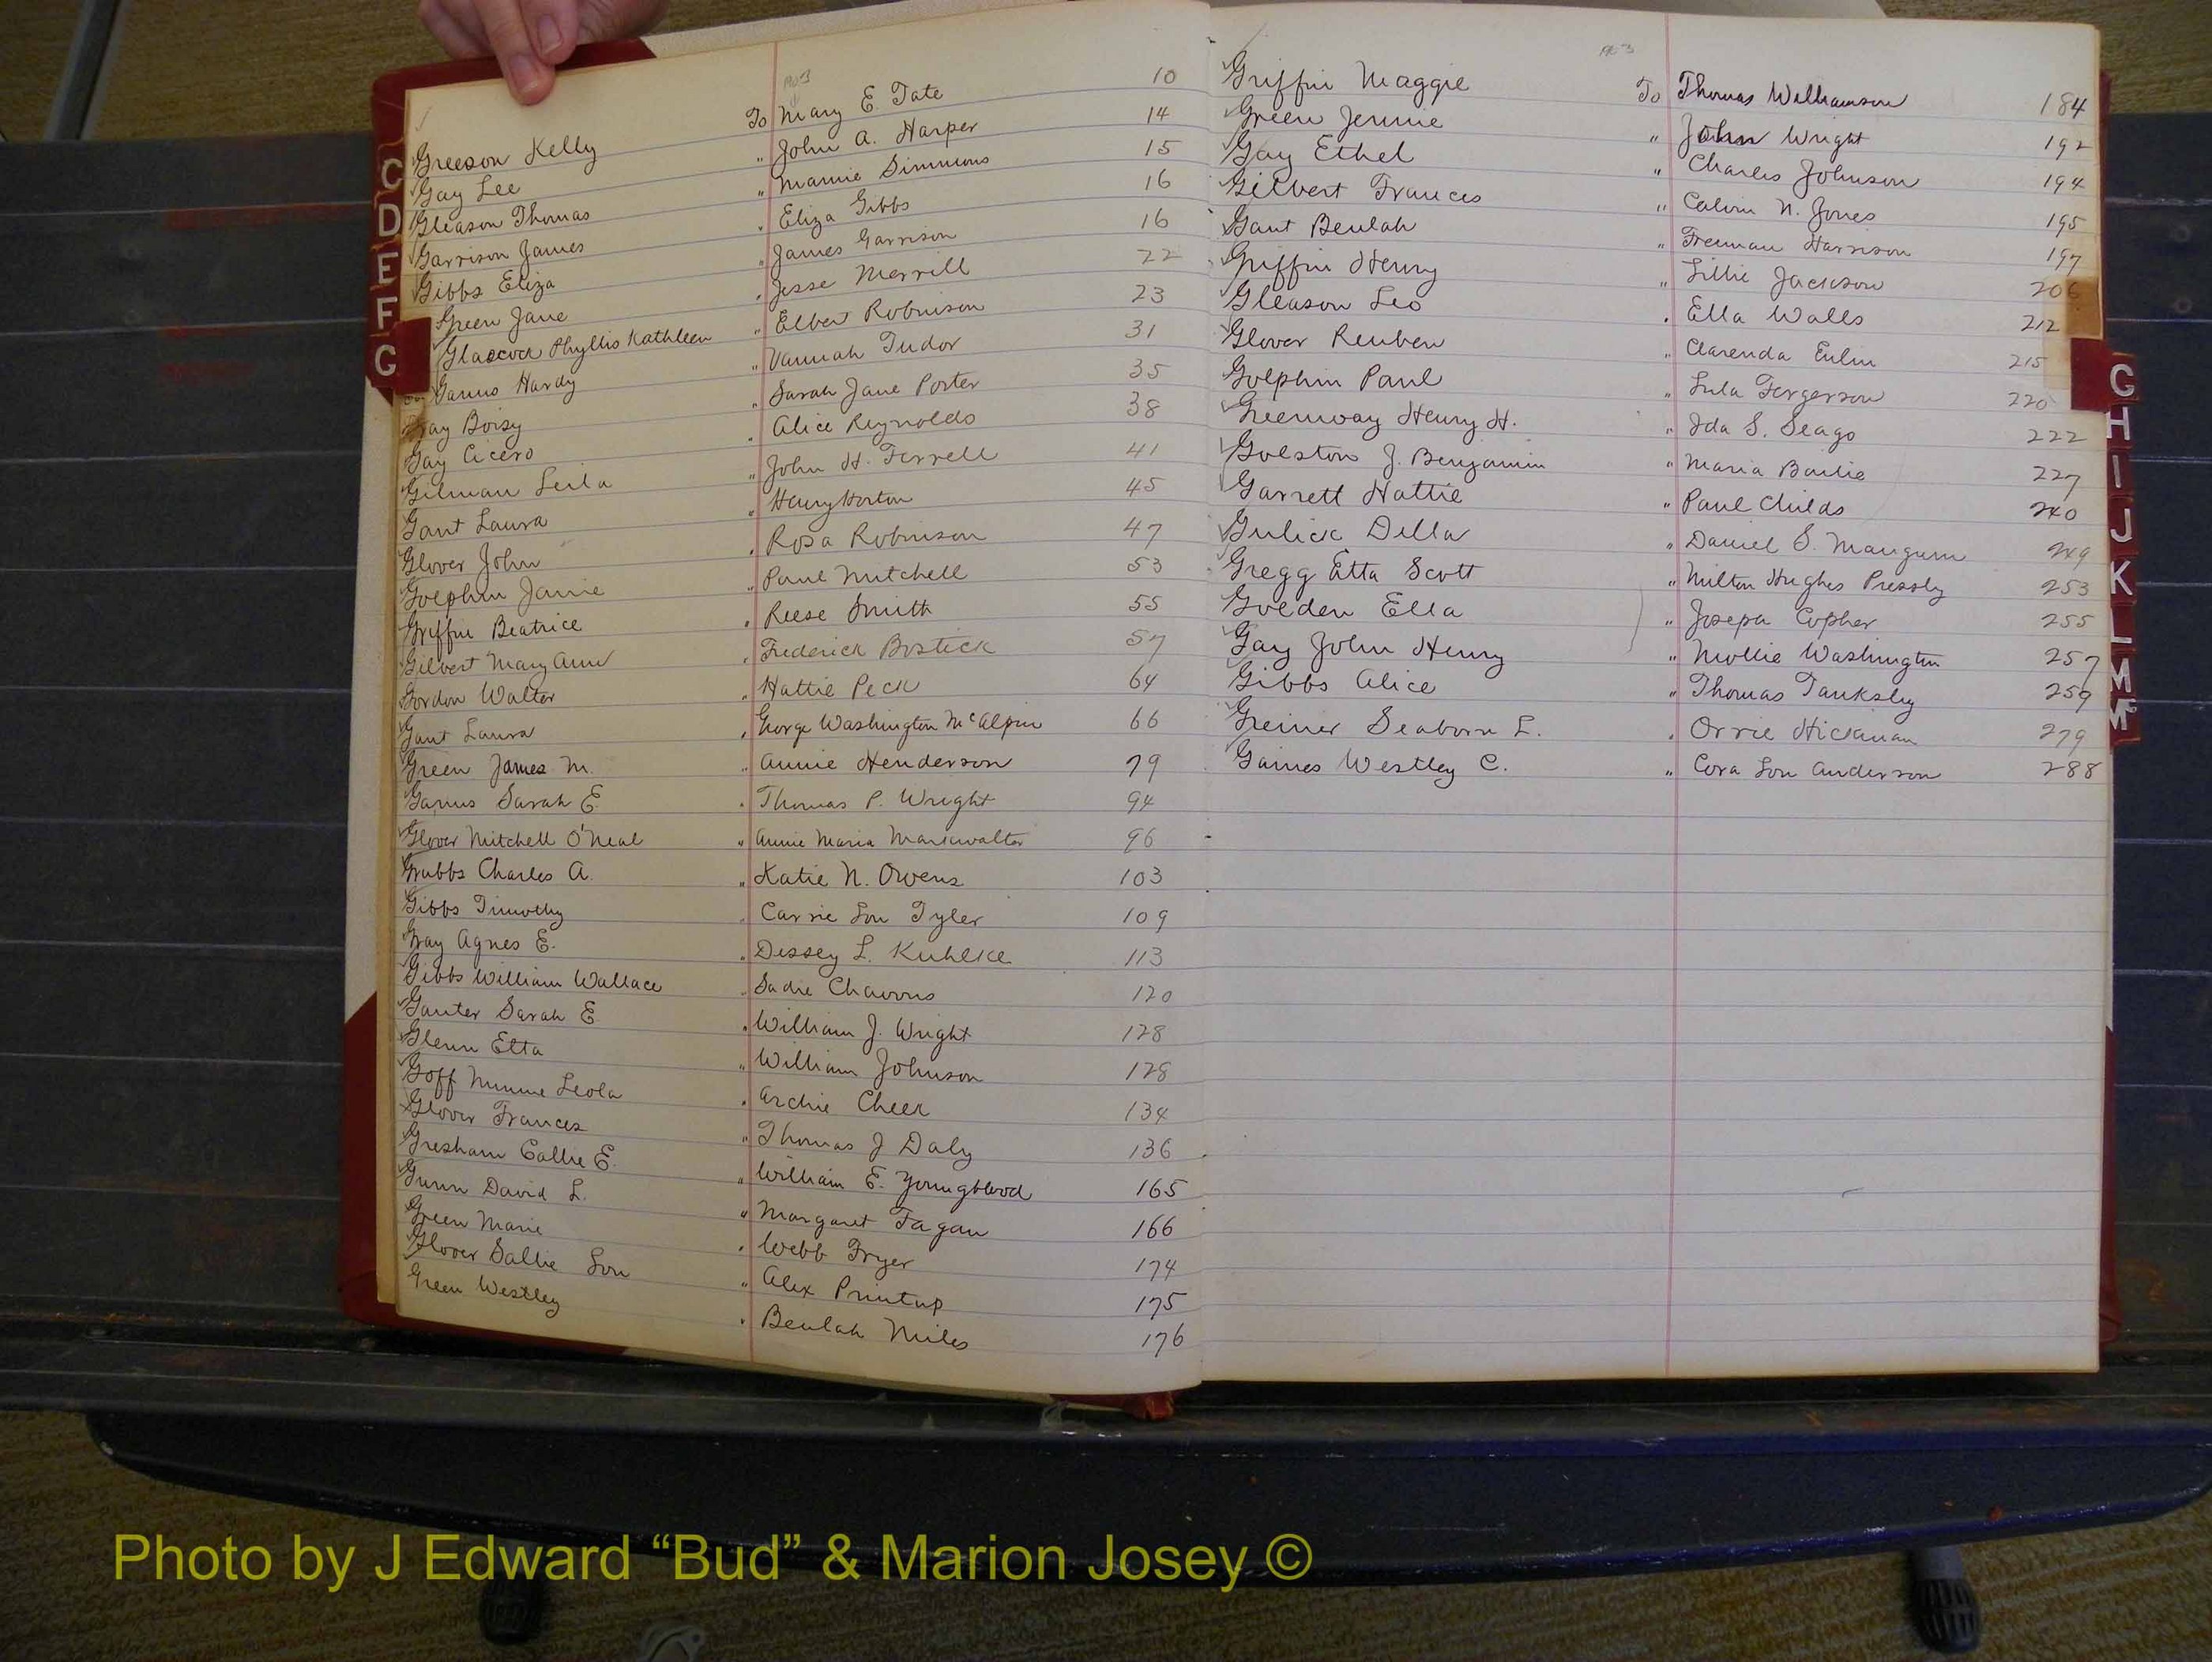 1903
Greeson Kelly To Mary E. Tate 10
Gay Lee " John A. Harper 14
Gleason Thomas " Mamie Simmons 15
Garrison James " Eliza Gibbs 16
Gibbs Eliza " James Garrison 16
Green Jane " Jesse Merrill 22
Glascock Phyllis Kathleen " Elbert Robinson 23
Garus Hardy " Vannah Tudor 31
Gay Boisy " Sarah Jane Porter 35
Gay Cicero " Alice Reynolds 38
Gilman Leila " John H. Ferrell 41
Gant Laura " Henry Horton 45
Glover John " Rosa Robinson 47
Golphin Janie " Paul Mitchell 53
Griffin Beatrice " Reese Smith 55
Gilbert Mary Ann " Frederick Bostick 57
Gordon Walter " Hattie Peck 64
Gant Laura " George Washington McAlpin 66
Green James M. " Annie Henderson 79
Garus Sarah E. " Thomas P. Wright 94
Glover Mitchell O'Neal " Annie Maria Markwalter 96
Grubbs Charles A. " Katie N. Owens 103
Gibbs Timothy " Carrie Lou Tyler 109
Gray Agnes E. " Dessey L. Kuhlke 113
Gibbs William Wallace " Sadie Chavous 120
Ganter Sarah E " William J. Wright 128
Glenn Etta " William Johnson 128
Goff Minnie Leola " Archie Cheek 134
Glover Frances " Thomas J Daly 136
Gresham Callie E. " William E. Youngblood 165
Gunn David L. " Margaret Fagan 166
Green Marie " Webb Fryer 174
Glover Sallie Lou " Alex Printup 175
Green Westley " Beulah Miles 176
1903
Griffin Maggie To Thomas Williamson 184
Green Jennie " John Wright 192
Gay Ethel " Charles Johnson 194
Gilbert Frances " Calvin N. Jones 195
Gant Beulah " Freeman Harrison 197
Griffin Henry " Lillie Jackson 206
Gleason Leo " Ella Walls 212
Glover Reuben " Clarenda Eulin 215
Golphin Paul " Lula Fergerson 220
Greenway Henry H. " Ida S. Seago 222
Golston J. Benjamin " Maria Bailie 227
Garrett Hattie " Paul Childs 240
Gulick Della " Daniel S. Mangum 249
Gregg Etta Scott " Milton Hughes Pressly 253
Golden Ella " Joseph Copher 255
Gay John Henry " Mollie Washington 257
Gibbs Alice " Thomas Tanksley 259
Greiner Seaborn L. " Orrie Hickman 279
Gaines Westley C. " Cora Lou Anderson 288
C
D
E
F
G
G
H
I
J
K
L
M
Mc
Photo by J Edward “Bud” & Marion Josey ©